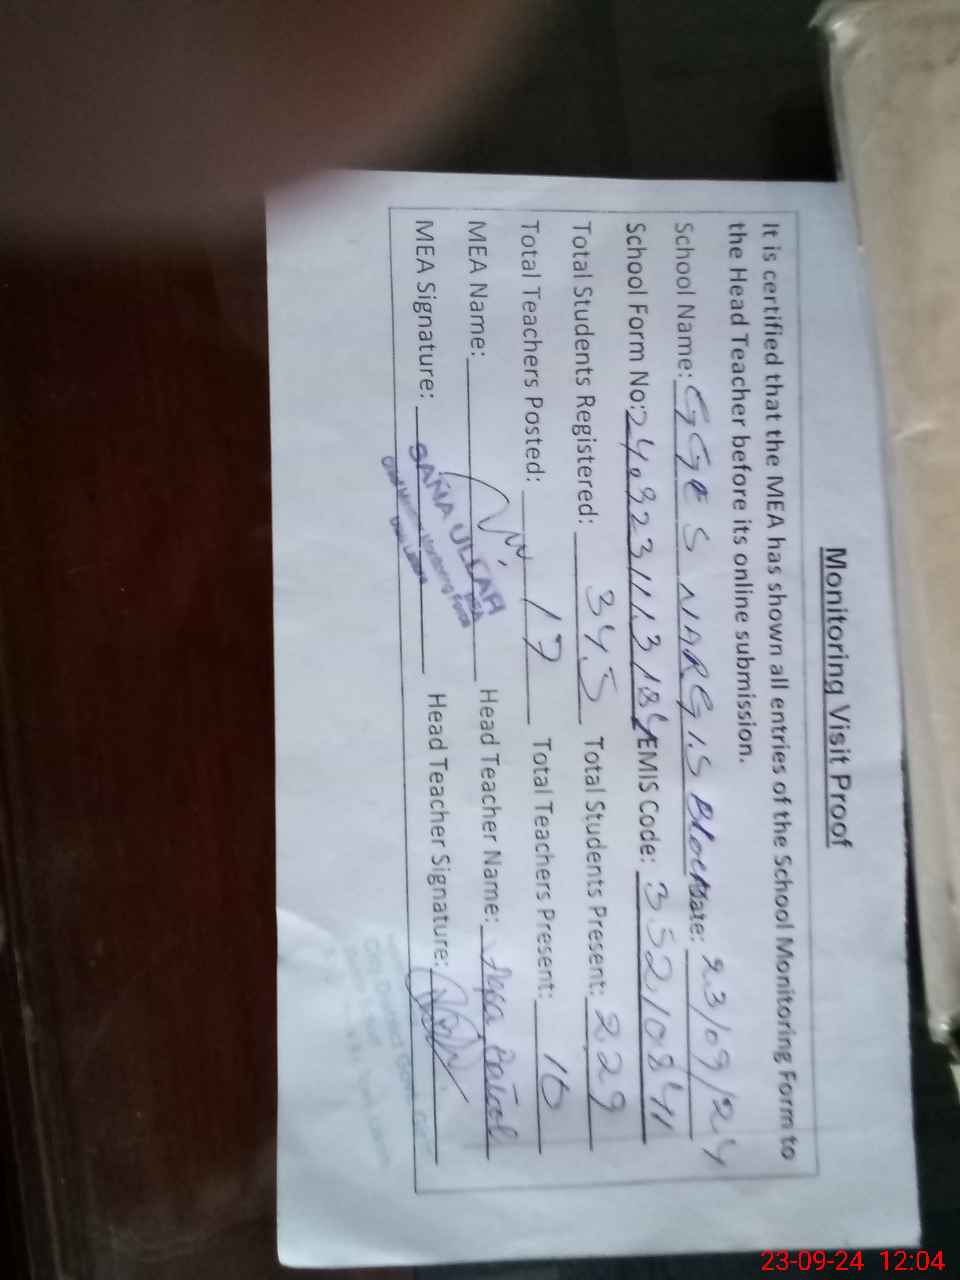 Monitoring Visit Proof
It is certified that the MEA has shown all entries of the School Monitoring Form to
the Head Teacher before its online submission.
School Name: GGES NARGIS Block Date: 23/09/24
School Form No: EMIS Code: 35210841
Total Students Registered: 345 Total Students Present: 229
Total Teachers Posted: 17 Total Teachers Present: 16
MEA Name: Head Teacher Name: Batool
MEA Signature: Head Teacher Signature:
SANA ULLAH
MEA
23-09-24 12:04